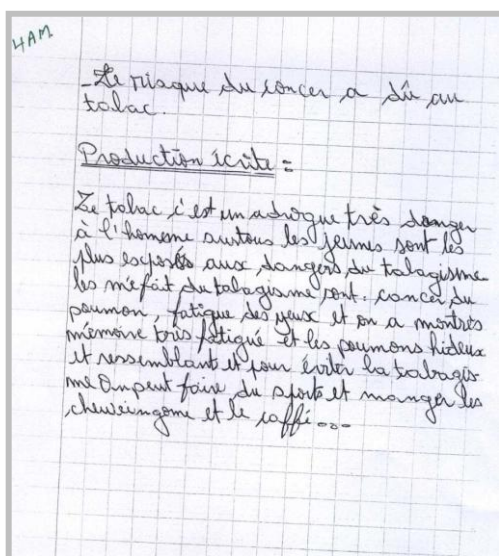 4AM
-Le risque du concer a dû au
tabac.
Production écrite :
Le tabac, c'est un adrogue très danger
à l'homeme surtous les jeunes sont les
plus escposés aux dangers du tabagisme
les méfait du tabagisme sont. cancer du
poumon, fatigue des yeux et on a montrés
mémoire très fatigué et les poumons hideux
et ressemblant et pour éviter la tabagis
me On peut faire du sporte et manger les
cheweingome et le caffé...